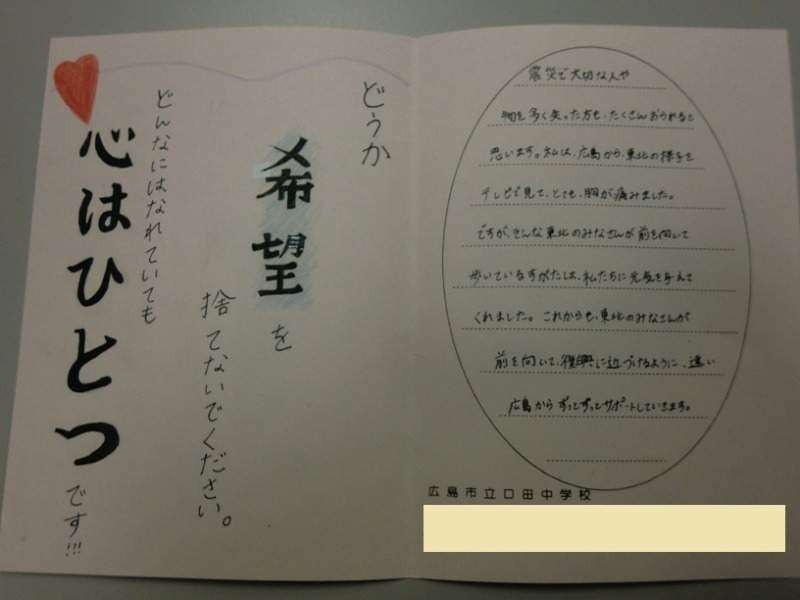 どうか
希望を
捨てないでください。
どんなにはなれていても
心はひとつです!!!
震災で大切な人や
物を多く失った方も、たくさんおられると
思います。私は、広島から、東北の様子を
テレビで見て、とても、胸が痛みました。
ですが、そんな東北のみなさんが前を向いて
歩いているすがたは、私たちに元気を与えて
くれました。これからも、東北のみなさんが
前を向いて、復興に近づけるように、遠い
広島からずっとずっとサポートしていきます。
広島市立口田中学校